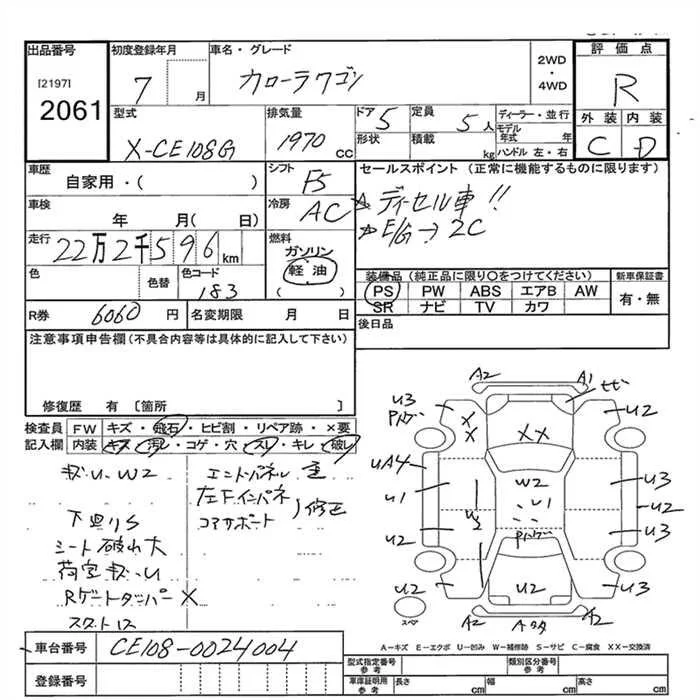 出品番号 初度登録年月 車名・グレード 2WD・4WD 評価点
[2197]
2061
7 月 カローラワゴン R
型式 排気量 ドア 5 定員 5人 ディーラー・並行 外装 内装
X-CE108G 1970 cc 形状 積載 kg モデル年式 年 C D
ハンドル 左・右
車歴 シフト F5 セールスポイント(正常に機能するものに限ります)
自家用・( )
車検 年 月( 日) 冷房 AC ☆ディーゼル車!!
☆E/G→2C
走行 22万2千596km 燃料 ガソリン 軽油 ( )
色 色替 色コード 183
装備品(純正品に限り○をつけてください) 新車保証書
PS PW ABS エアB AW 有・無
SR ナビ TV カワ
R券 6060円 名変期限 月 日 後日品
注意事項申告欄(不具合内容等は具体的に記入して下さい)
修復歴 有 [箇所 ]
検査員 FW キズ・飛石・ヒビ割・リペア跡・×要
記入欄 内装 キズ・汚レ・コゲ・穴・スレ・キレ・破レ
キズ・U・W2
下廻りS
シート破れ大
荷室キズ・U
RゲートダンパーX
エンドパネル 歪
左下インパネ
コアサポート
修正
A2 A1
U3 U2
X X XX
UA4 U1 W2 U1 U3
U2 U3 U2
U2 U3
U2 U2 U3
A2 A2
スペア
A-キズ E-エクボ U-凹み W-補修跡 S-サビ C-腐食 XX-交換済
車台番号 CE108-0024004
登録番号
型式指定番号 参考 類別区分番号 参考
車庫証明用 参考 長さ cm 幅 cm 高さ cm